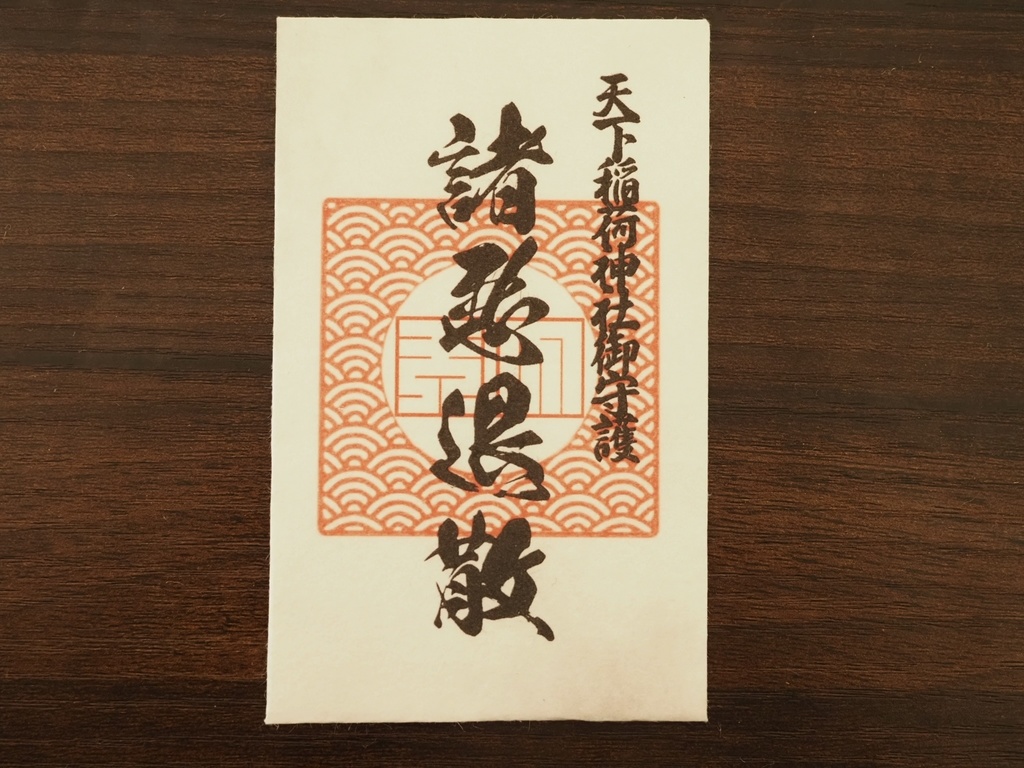 天下稲荷神社御守護
諸悪退散